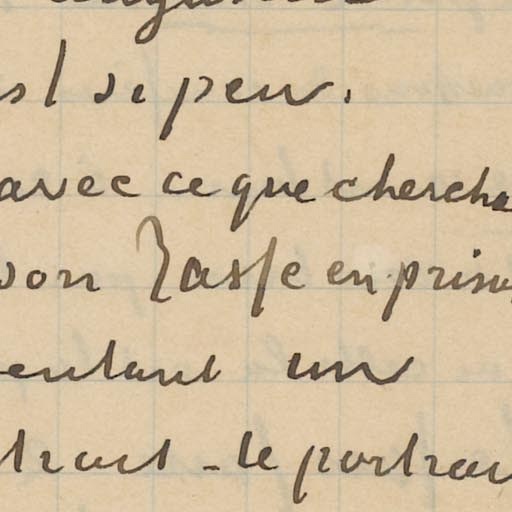 si peu.
avec ce que chercha
son Tasse en prison
entant un
trait - le portrai